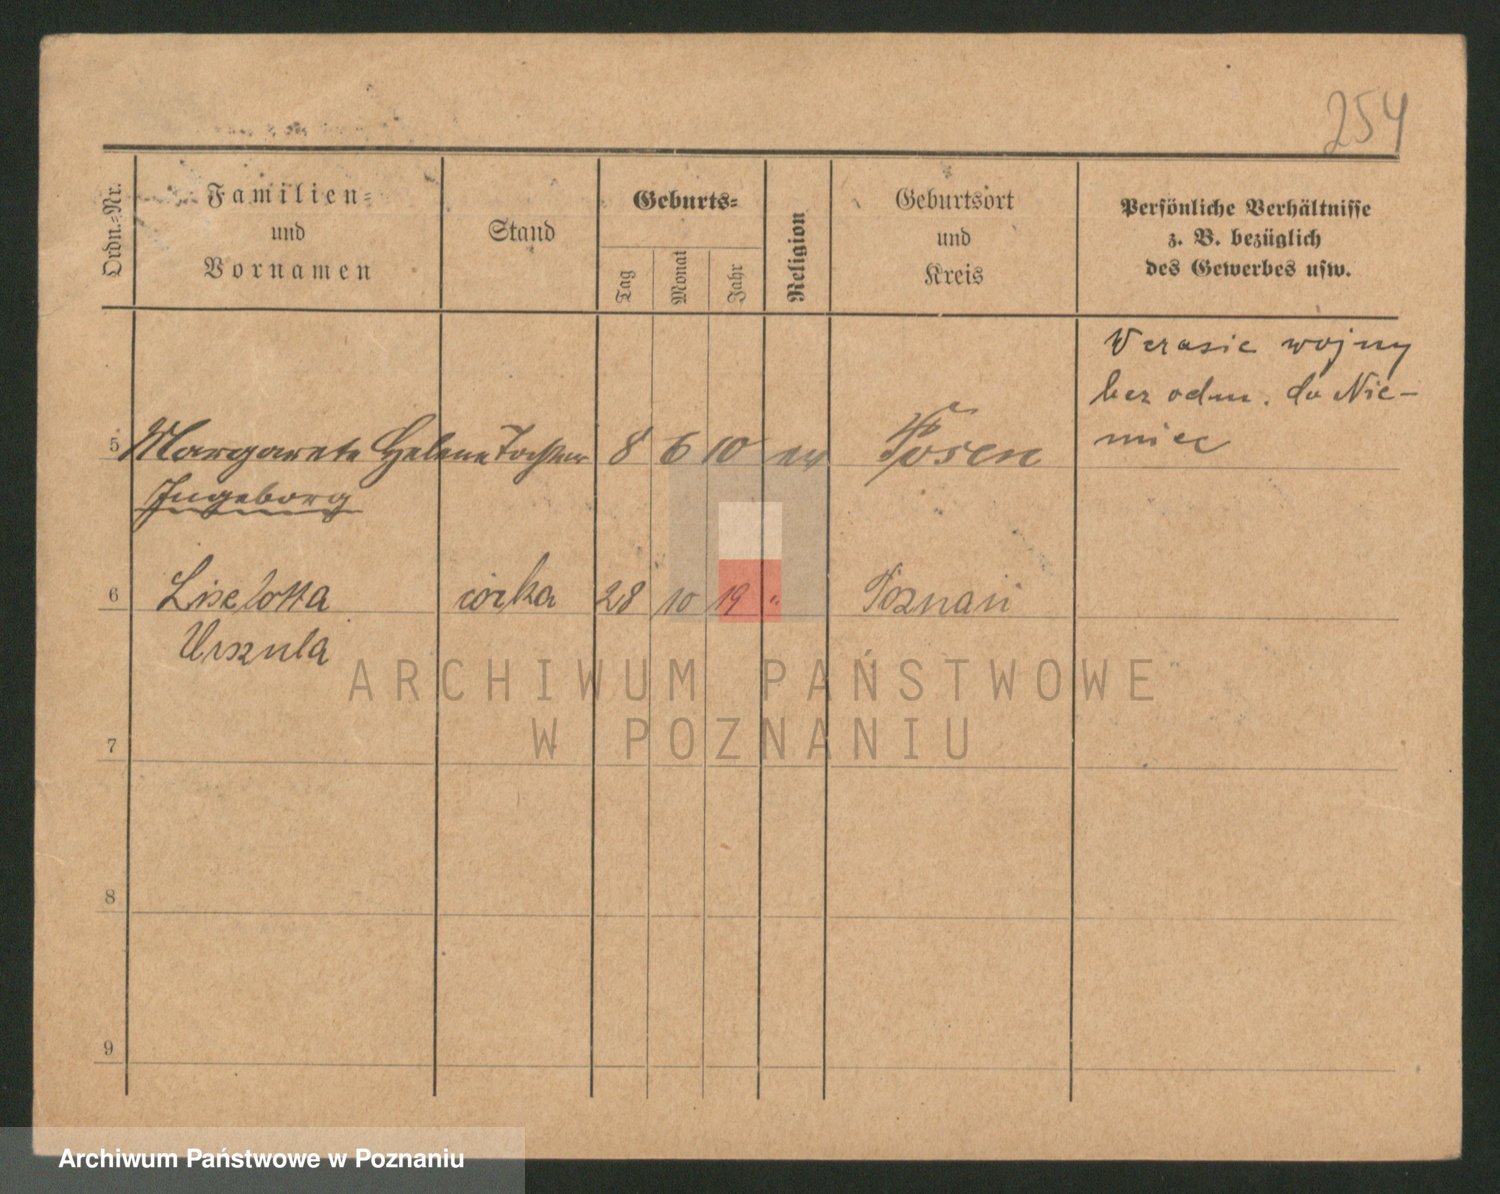 254
Ordn.-Nr.
Familien-
und
Vornamen
Stand
Geburts-
Tag
Monat
Jahr
Religion
Geburtsort
und
Kreis
Persönliche Verhältnisse
z. B. bezüglich
des Gewerbes usw.
W czasie wojny
bez odm. do Nie-
miec
5 Margarete Helene Tochter 8 6 10 ev Posen
Ingeborg
6 Liselotta córka 28 10 19 " Poznań
Urszula
ARCHIWUM PAŃSTWOWE
W POZNANIU
7
8
9
Archiwum Państwowe w Poznaniu